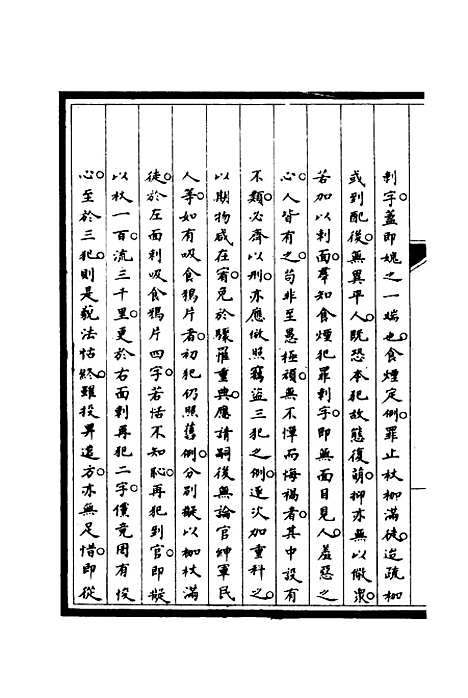 刺字蓋即媿之一端也食煙定例罪止杖枷滿徒迨疏枷
或到配後無異平人既恐本犯故態復萌抑亦無以儆眾
若加以刺面羣知食煙犯罪刺字即無面目見人羞惡之
心人皆有之茍非至愚極頑無不憚而悔禍者其中設有
不類必齊以刑亦應倣照竊盜三犯之例遞次加重科之
以期物咸在宥免於驟罹重典應請嗣後無論官紳軍民
人等如有吸食鴉片者初犯仍照舊例分別擬以枷杖滿
徒於左面刺吸食鴉片四字若怙不知恥再犯到官即擬
以杖一百流三千里更於右面刺再犯二字儻竟罔有悛
心至於三犯則是藐法怙終雖投畀遠方亦無足惜即從